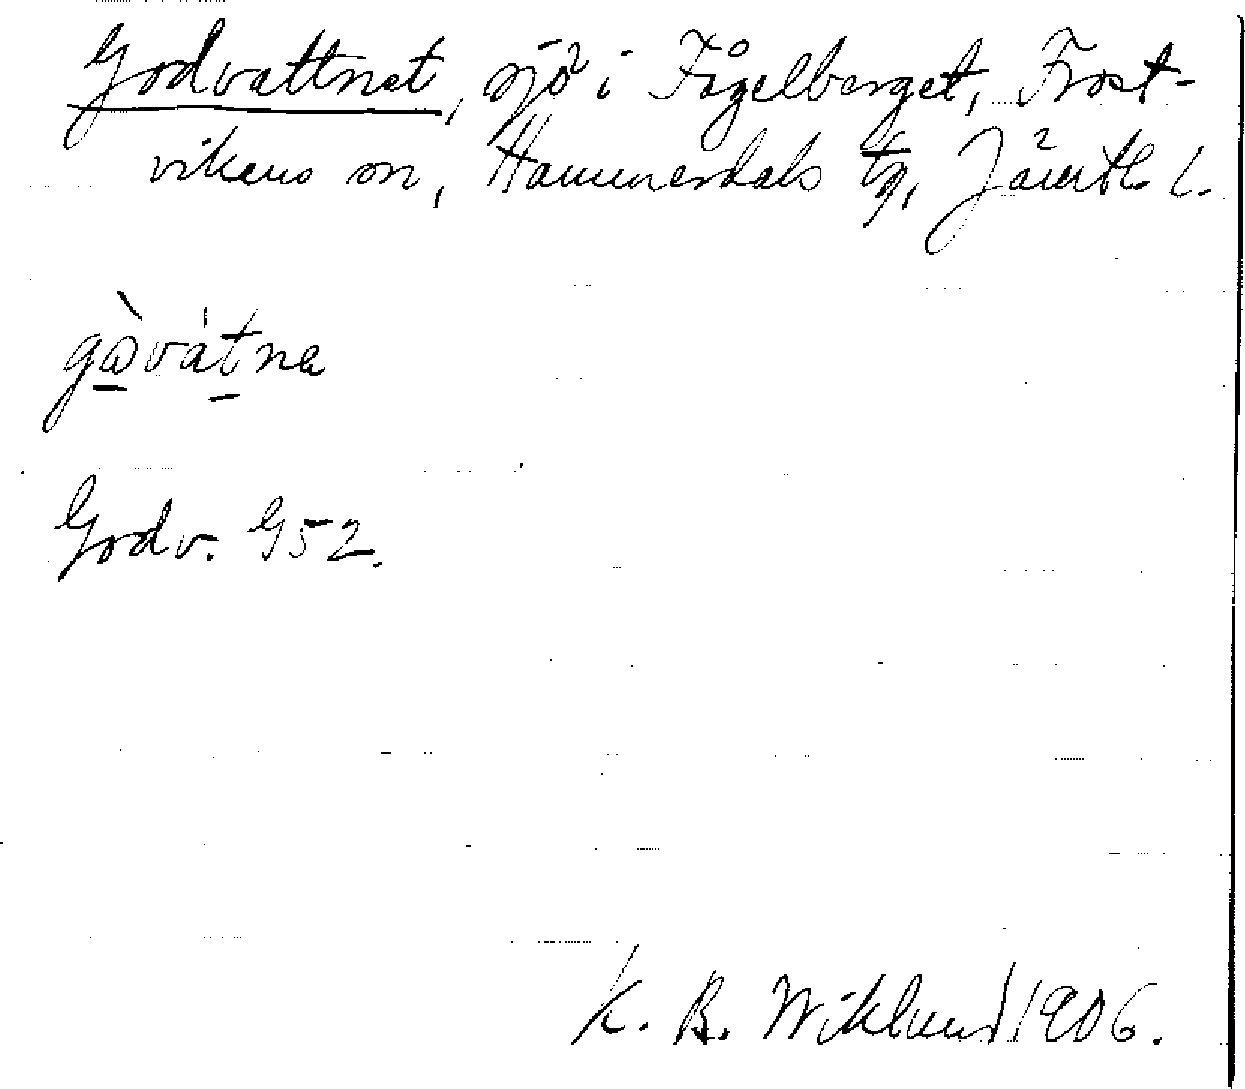 Godvattnet, sjö i Fågelberget, Frost-
vikens sn, Hammerdals tg, Jämtl. l.
gòvátna
Godv. G52.
K. B. Wiklund 1906.